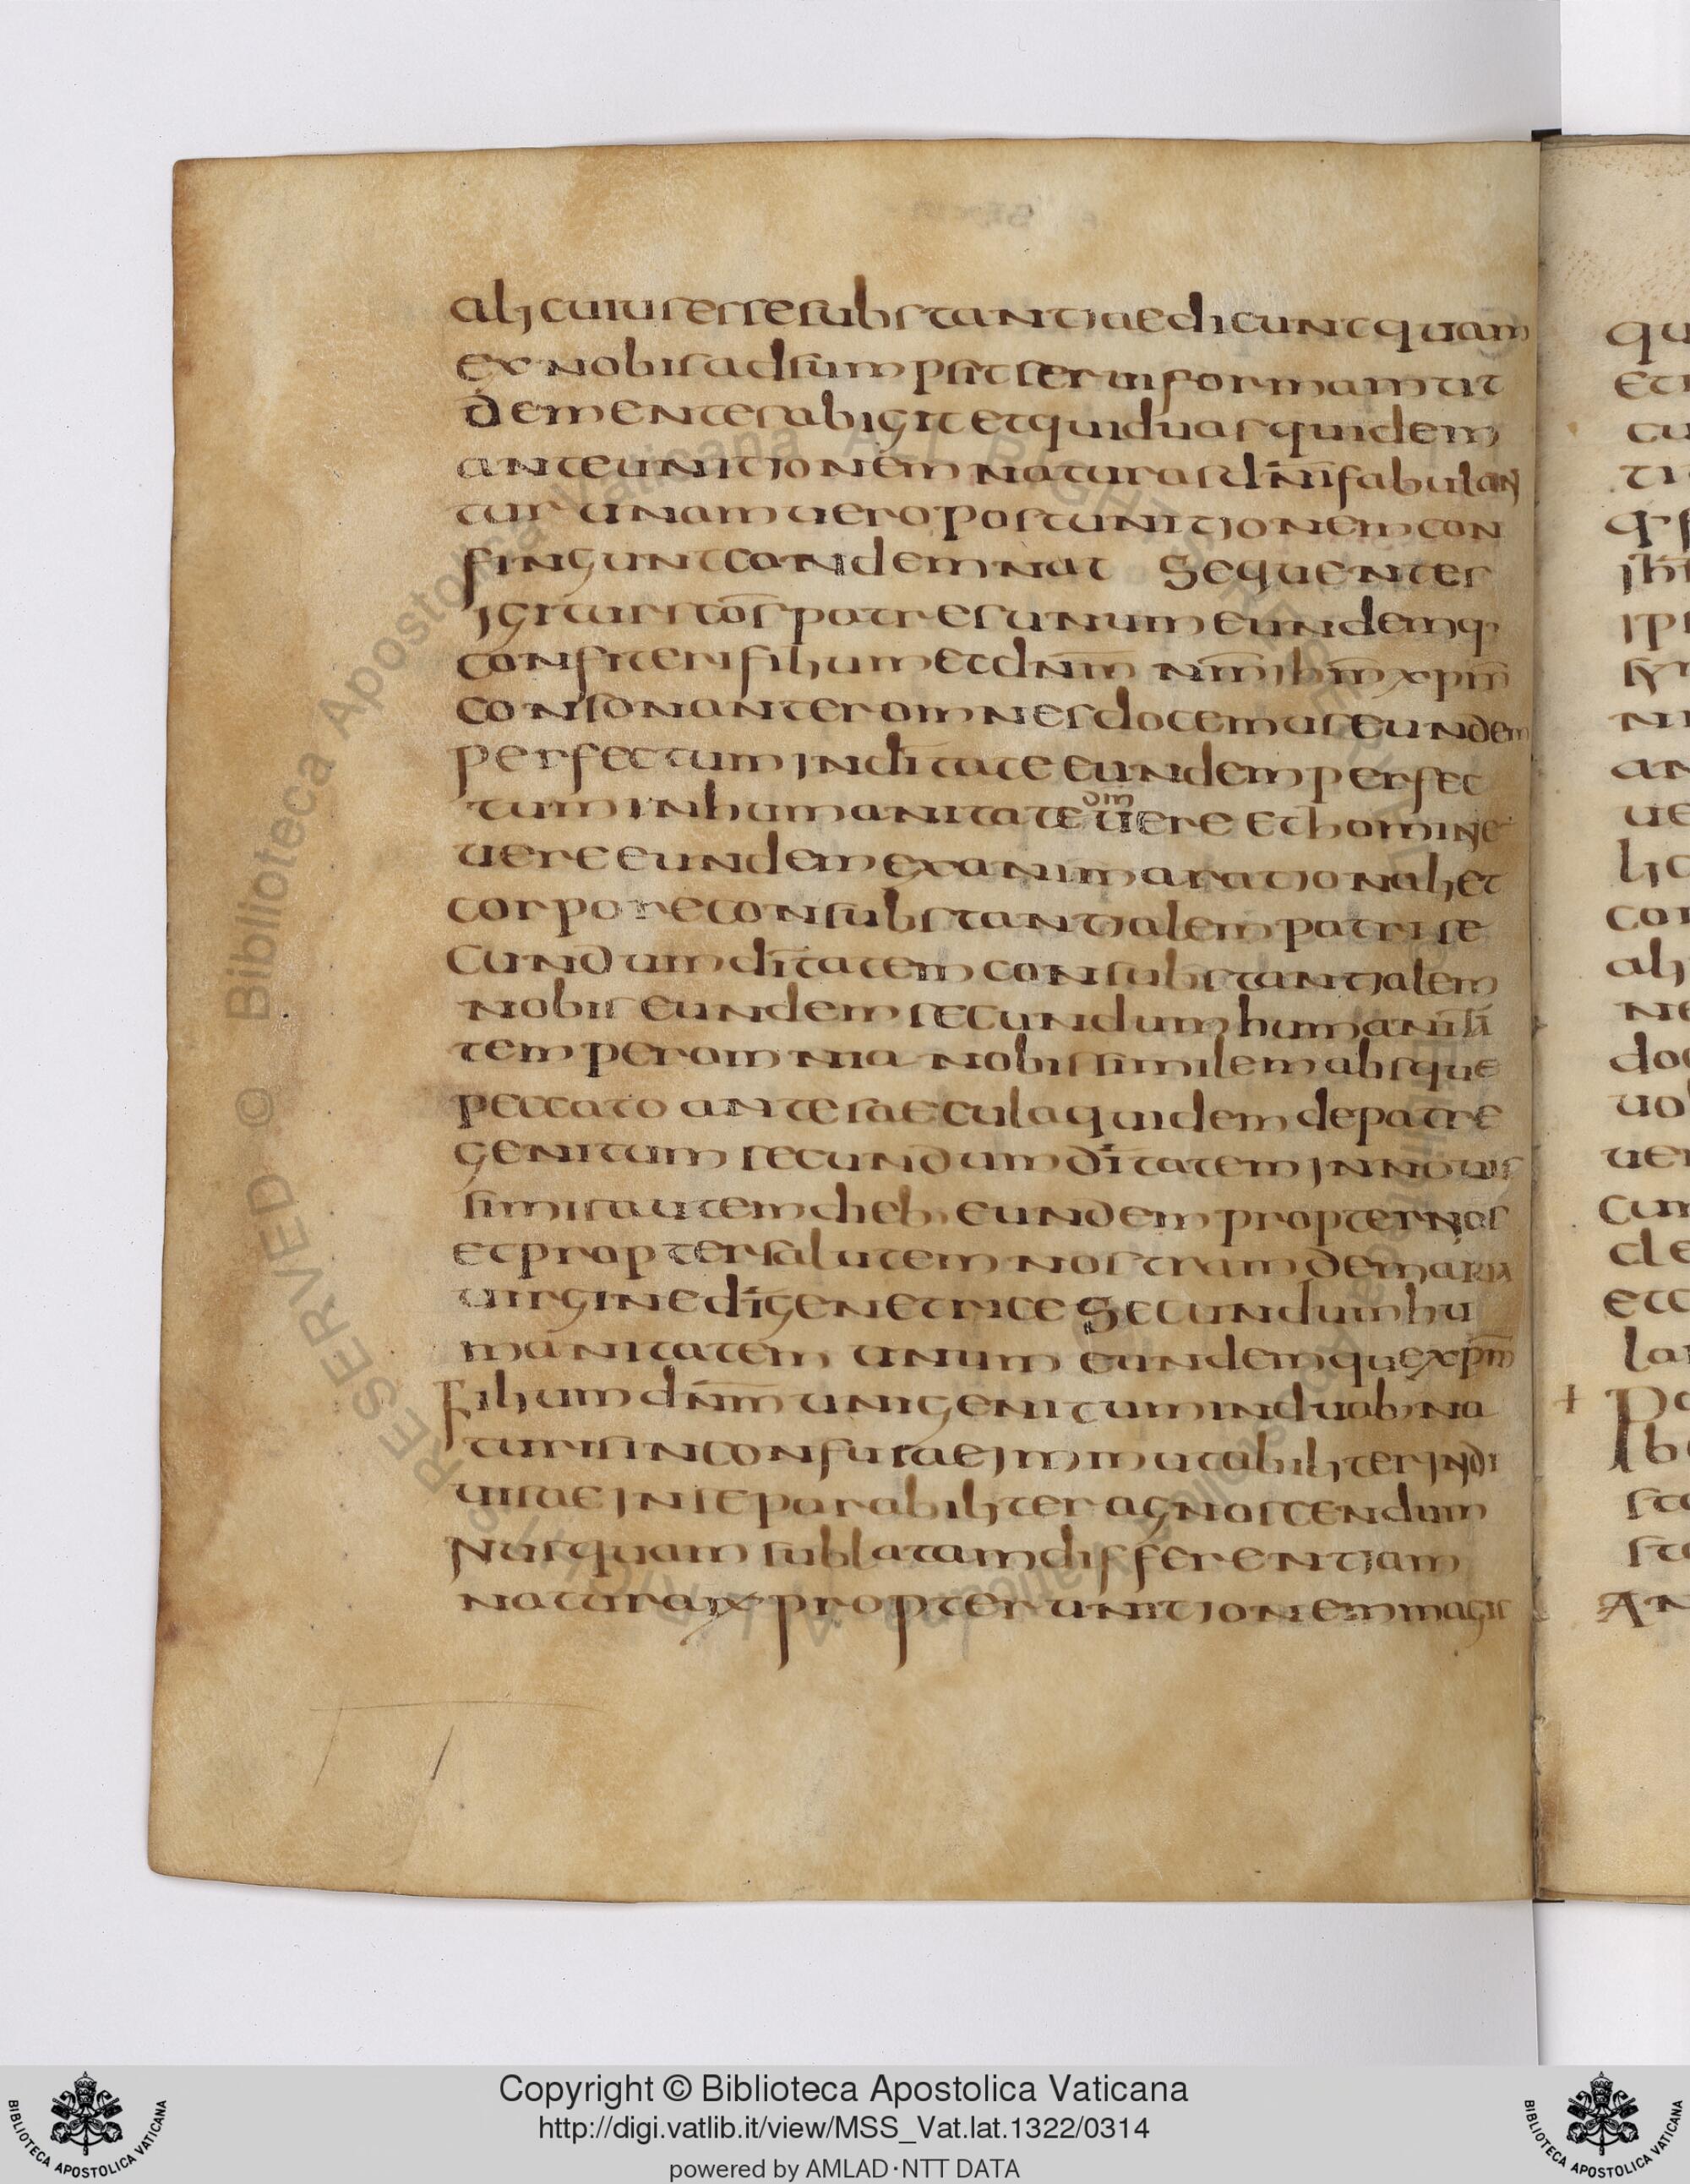 alicuius esse substantiae dicunt quam
ex nobis adsumpsit serui formam ut
dementes abigit et qui duas quidem
ante unitionem naturas dn̅i fabulan
tur unam uero post unitionem con
fingunt condemnat Sequentes
igitur sc̅o̅s patres unum eundemq·
confiteri filium et dn̅m n̅m ih̅m xp̅m
consonanter omnes docemus eundem
perfectum in di̅tate eundem perfec
tum in humanitate dm̅ uere et homine
uere eundem ex anima rationali et
corpore consubstantialem patri se
cundum di̅tatem consubstantialem
nobis eundem secundum humani
tem per omnia nobis similem absque
peccato ante saecula quidem de patre
genitum secundum di̅tatem in nouis
simis autem dieb; eundem propter nos
et propter salutem nostram de maria
uirgine di̅ genetrice Secundum hu
manitatem unum eundemque xp̅m
Filium dn̅m unigenitum in duab; na
turis inconfusae inmutabiliter indi
uisae inseparabiliter agnoscendum
Nusquam sublatam differentiam
naturarꝝ propter unitionem magis
qu
et
cu
ti
q·f
ih̅
ips
sy
ni
an
ue
lic
con
ali
ne
doc
uol
uer
cum
cle
ecc
lar
+ Pa
b
sc
sc
An
ALL RIGHTS RESERVED © Biblioteca Apostolica Vaticana
Copyright © Biblioteca Apostolica Vaticana
http://digi.vatlib.it/view/MSS_Vat.lat.1322/0314
powered by AMLAD·NTT DATA
BIBLIOTECA APOSTOLICA VATICANA
BIBLIOTECA APOSTOLICA VATICANA